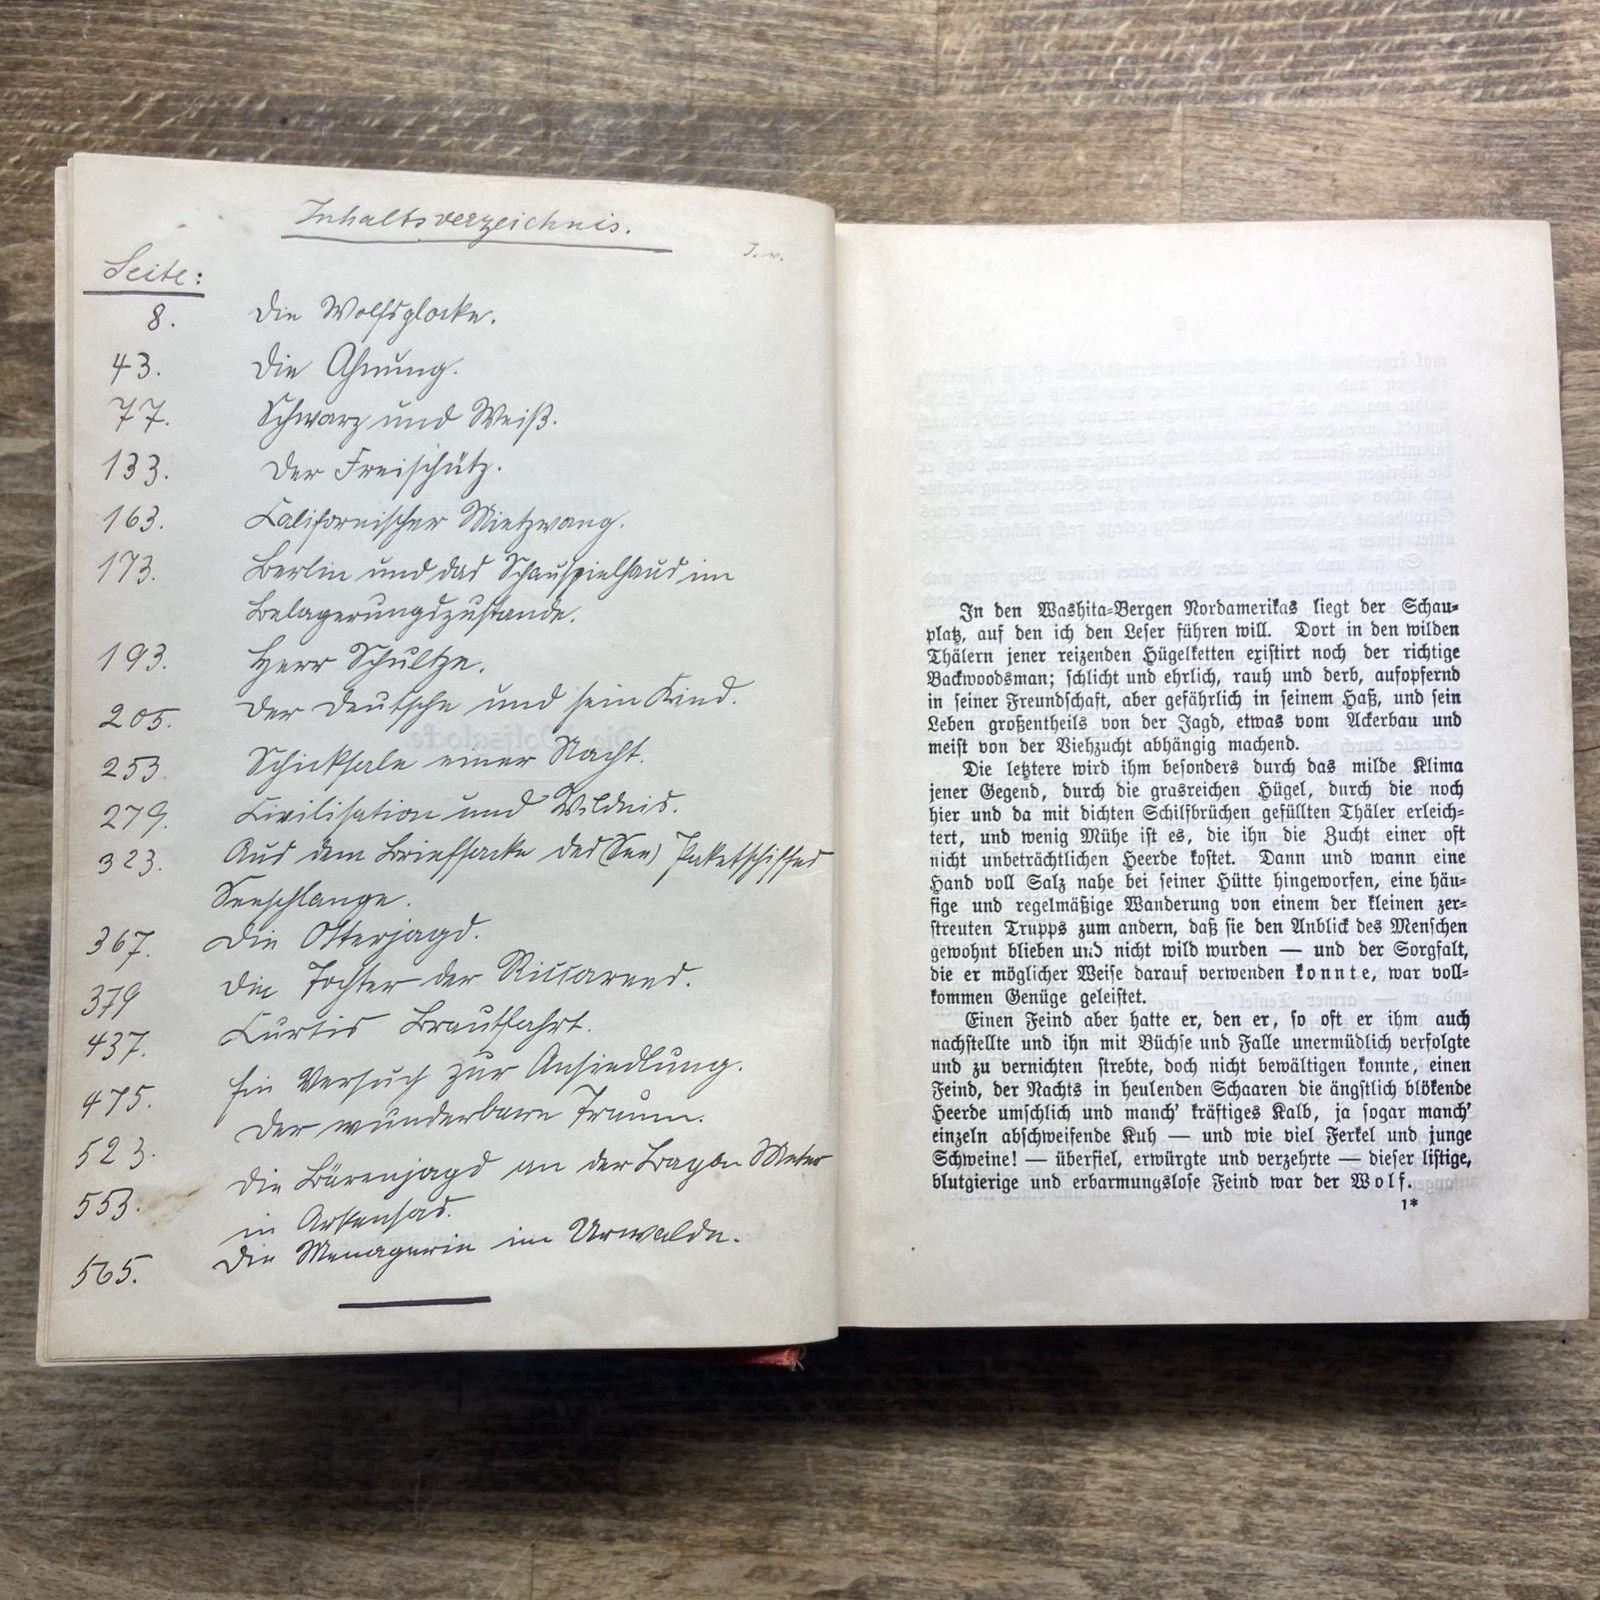 Inhaltsverzeichnis.
Seite:
8. Die Wolfsglocke.
43. Die Ahnung.
77. Schwarz und Weiß.
133. Der Freischütz.
163. Californischer Mietzwang.
173. Berlin und das Schauspielhaus im
Belagerungszustande.
193. Herr Schultze.
205. Der Deutsche und sein Kind.
253. Schicksale einer Nacht.
279. Civilisation und Wildnis.
323. Aus dem Briefsacke des (See) Paketschiffes
Seeschlange.
367. Die Otterjagd.
379 Die Tochter der Riccarees.
437. Curtis Brautfahrt.
475. Ein Versuch zur Ansiedlung.
523. Der wunderbare Traum.
553. Die Bärenjagd an der
in Arkensas.
565. Die Menagerie im Urwalde.
In den Washita-Bergen Nordamerikas liegt der Schau-
platz, auf den ich den Leser führen will. Dort in den wilden
Thälern jener reizenden Hügelketten existirt noch der richtige
Backwoodsman; schlicht und ehrlich, rauh und derb, aufopfernd
in seiner Freundschaft, aber gefährlich in seinem Haß, und sein
Leben großentheils von der Jagd, etwas vom Ackerbau und
meist von der Viehzucht abhängig machend.
Die letztere wird ihm besonders durch das milde Klima
jener Gegend, durch die grasreichen Hügel, durch die noch
hier und da mit dichten Schilfbrüchen gefüllten Thäler erleich-
tert, und wenig Mühe ist es, die ihn die Zucht einer oft
nicht unbeträchtlichen Heerde kostet. Dann und wann eine
Hand voll Salz nahe bei seiner Hütte hingeworfen, eine häu-
fige und regelmäßige Wanderung von einem der kleinen zer-
streuten Trupps zum andern, daß sie den Anblick des Menschen
gewohnt blieben und nicht wild wurden — und der Sorgfalt,
die er möglicher Weise darauf verwenden konnte, war voll-
kommen Genüge geleistet.
Einen Feind aber hatte er, den er, so oft er ihm auch
nachstellte und ihn mit Büchse und Falle unermüdlich verfolgte
und zu vernichten strebte, doch nicht bewältigen konnte, einen
Feind, der Nachts in heulenden Schaaren die ängstlich blökende
Heerde umschlich und manch' kräftiges Kalb, ja sogar manch'
einzeln abschweifende Kuh — und wie viel Ferkel und junge
Schweine! — überfiel, erwürgte und verzehrte — dieser listige,
blutgierige und erbarmungslose Feind war der Wolf.
1*